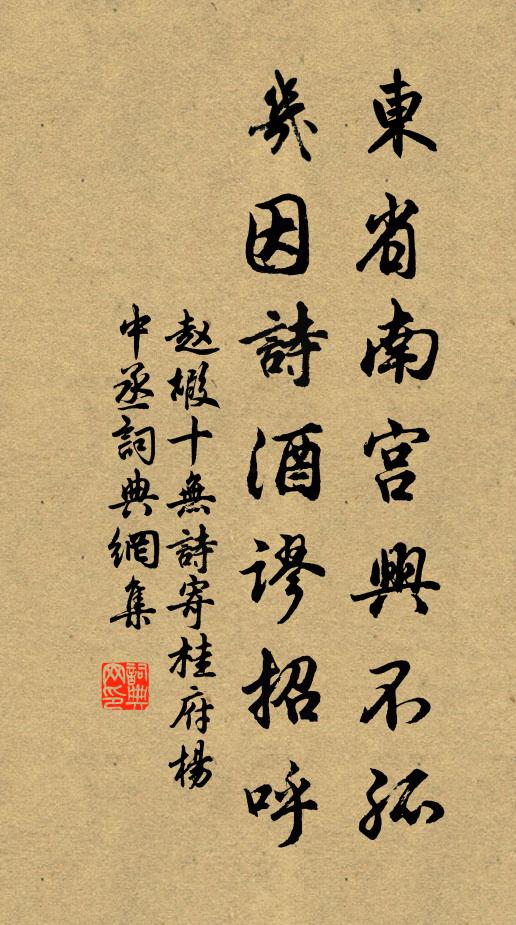 東省南宮興不孤
幾因詩酒謬招呼
赵嘏十無詩寄桂府楊
中丞詞典網集
詞典网印